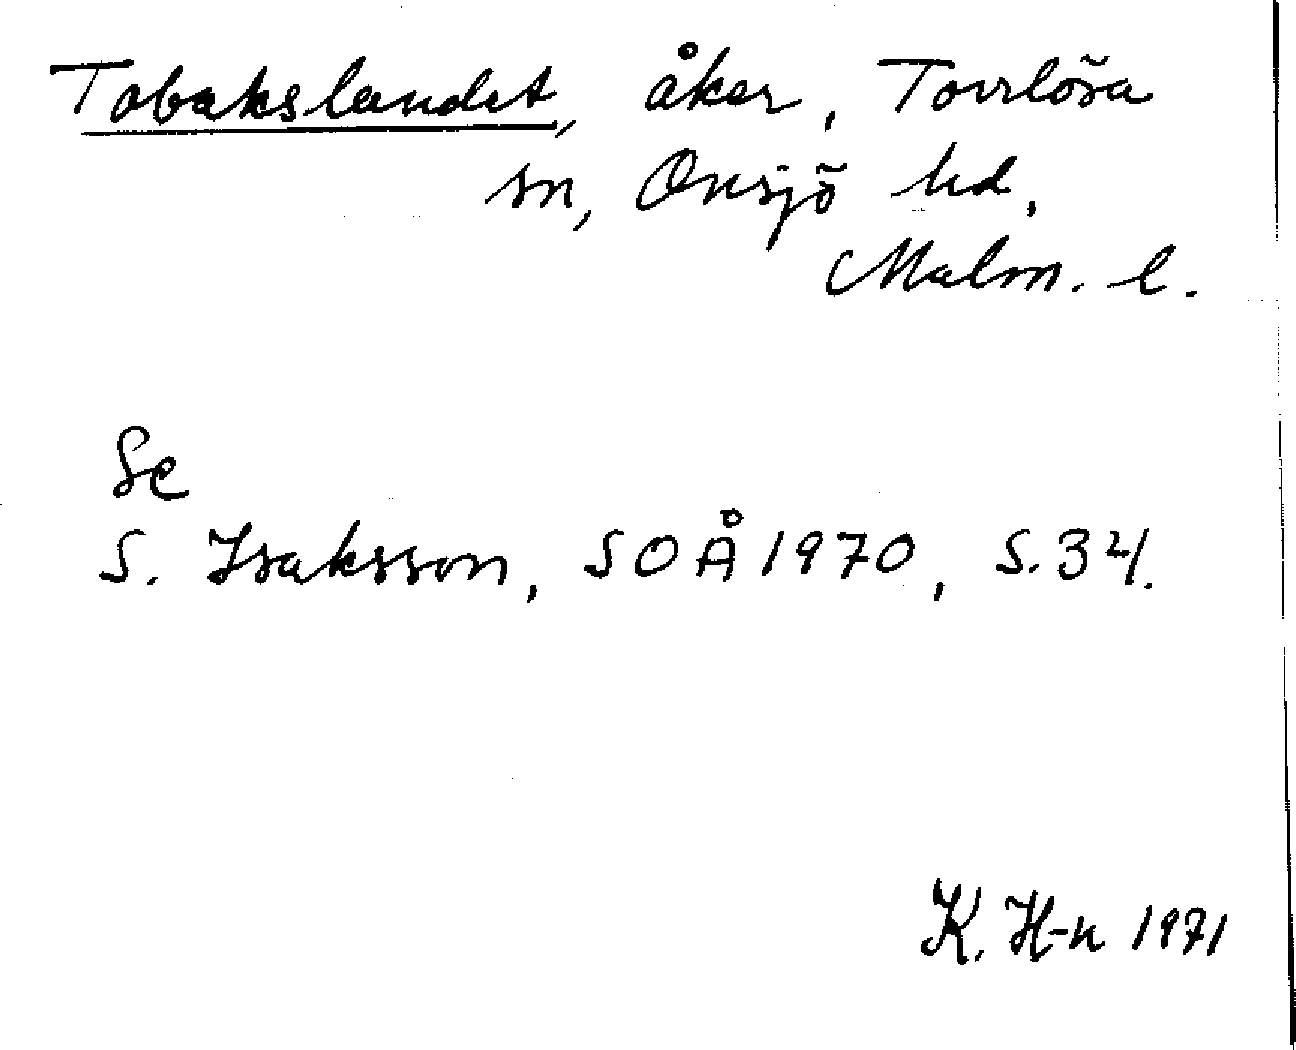 Tobakslandet, åker, Torrlösa
sn, Onsjö hd,
Malm. l.
Se
S. Isaksson, SOÅ 1970, s. 34.
K. H-n 1971